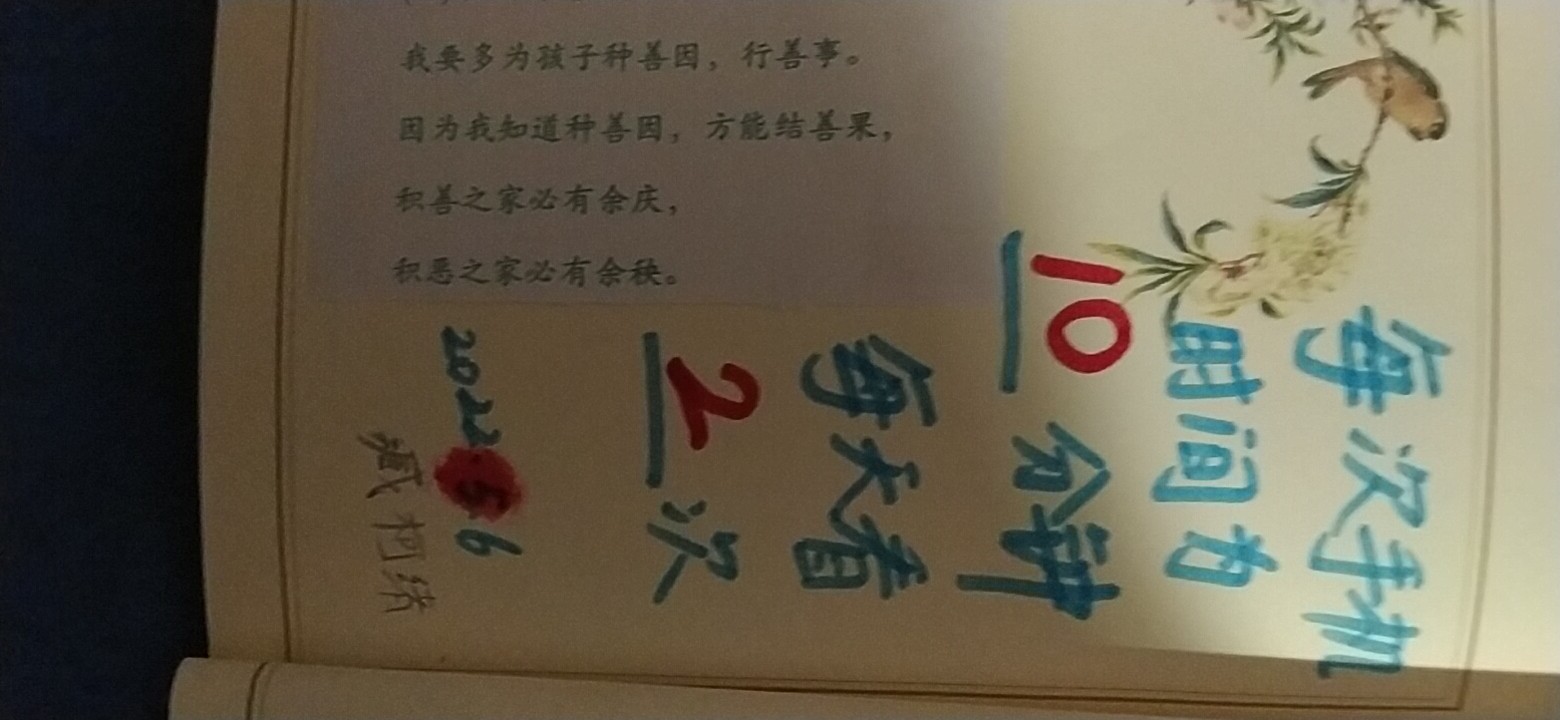 我要多为孩子种善因，行善事。
因为我知道种善因，方能结善果，
积善之家必有余庆，
积恶之家必有余秧。
每次手机
时间为
10分钟
每天看
2次
2022.5.6
臧柯绪